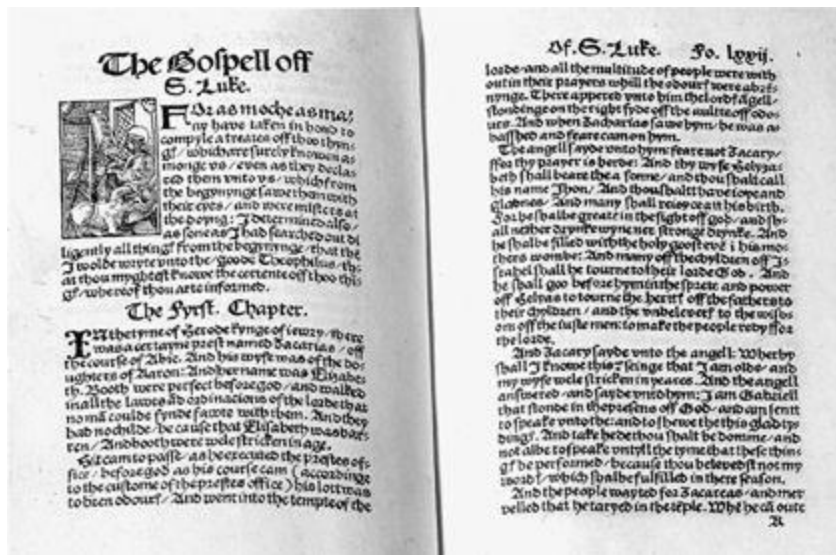 The Gospell off
S. Luke.
FOr as moche as ma/
ny have taken in hond to
compyle a treates off thoo thyn-
gs/ which are surely knowen a-
monge vs/ even as they decla-
red them vnto vs/ which from
the begynynge sawe them with
their eyes/ and were misters at
the doyng: I determined also/
as sone as I had searched out di
ligently all things from the begynynge/ that the
I wolde wryte vnto the/ goode Theophilus/ th-
at thou myghtest knowe the certente off thoo thin
gs/ where of thou arte informed.
The Fyrst. Chapter.
IN the tyme of Herode kynge of iewry/ there
was a certayne prest named Zacarias/ off
the course of Abie. And his wyfe was of the do-
ughters of Aaron: And her name was Elizabe-
th. Booth were perfect before god/ and walked
in all the lawes ād ordinacions of the lorde that
no mā coulde fynde fawte with them. And they
had no childe/ be cause that Elisabeth was bar-
ren/ And booth were wele stricken in age.
Hit cam to passe/ as he executed the prestes of-
fice/ before god as his course cam (accordinge
to the custome of the prestes office) his lott was
to bren odours/ And went into the temple of the
Of. S. Luke. Fo. lxxij.
lorde/ and all the multitude of people were with
out in their prayers whill the odours were abren-
nynge. There appered vnto him the lords Agell/
stondinge on the right syde off the aultre off odo-
urs. And when Zacharias sawe hym/ he was a-
basshed and feare cam on hym.
The angell sayde vnto hym: feare not Zacary/
ffor thy prayer is herde: And thy wyfe Helyza-
beth shall beare the a sonne/ and thou shalt call
his name Jhon/ And thou shalt have ioye and
gladnes/ And many shall reioyce att his birth.
For he shalbe greate in the sight off god/ and sh-
all nether drynke wyne ner stronge drynke. And
he shalbe filled with the holy goost/ evē i his mo-
thers wombe: And many off the chyldren off Is-
rahel shall he tourne to their lorde God. And
he shall goo before hym in the sprete and power
off Helyas to tourne the hertts off the fathers to
their chyldren/ and the vnbelevers to the wisdo-
om off the iuste men: to make the people redy ffor
the lorde.
And Zacary sayde vnto the angell: Wherby
shall I knowe this? seinge that I am olde/ and
my wyfe wele stricken in yeares. And the angell
answered/ and sayde vnto hym: I am Gabriell
that stonde in the presens off God/ and am sent
to speake vnto the: and to shewe the this glad ty-
dings. And take hede thou shalt be domme/ and
not able to speake vntyll the tyme that these thin-
gs be performed/ because thou belevedst not my
words/ which shalbe fulfilled in there season.
And the people wayted for Zacareas/ and mer
velled that he taryed in the tēple. Whē he cā oute